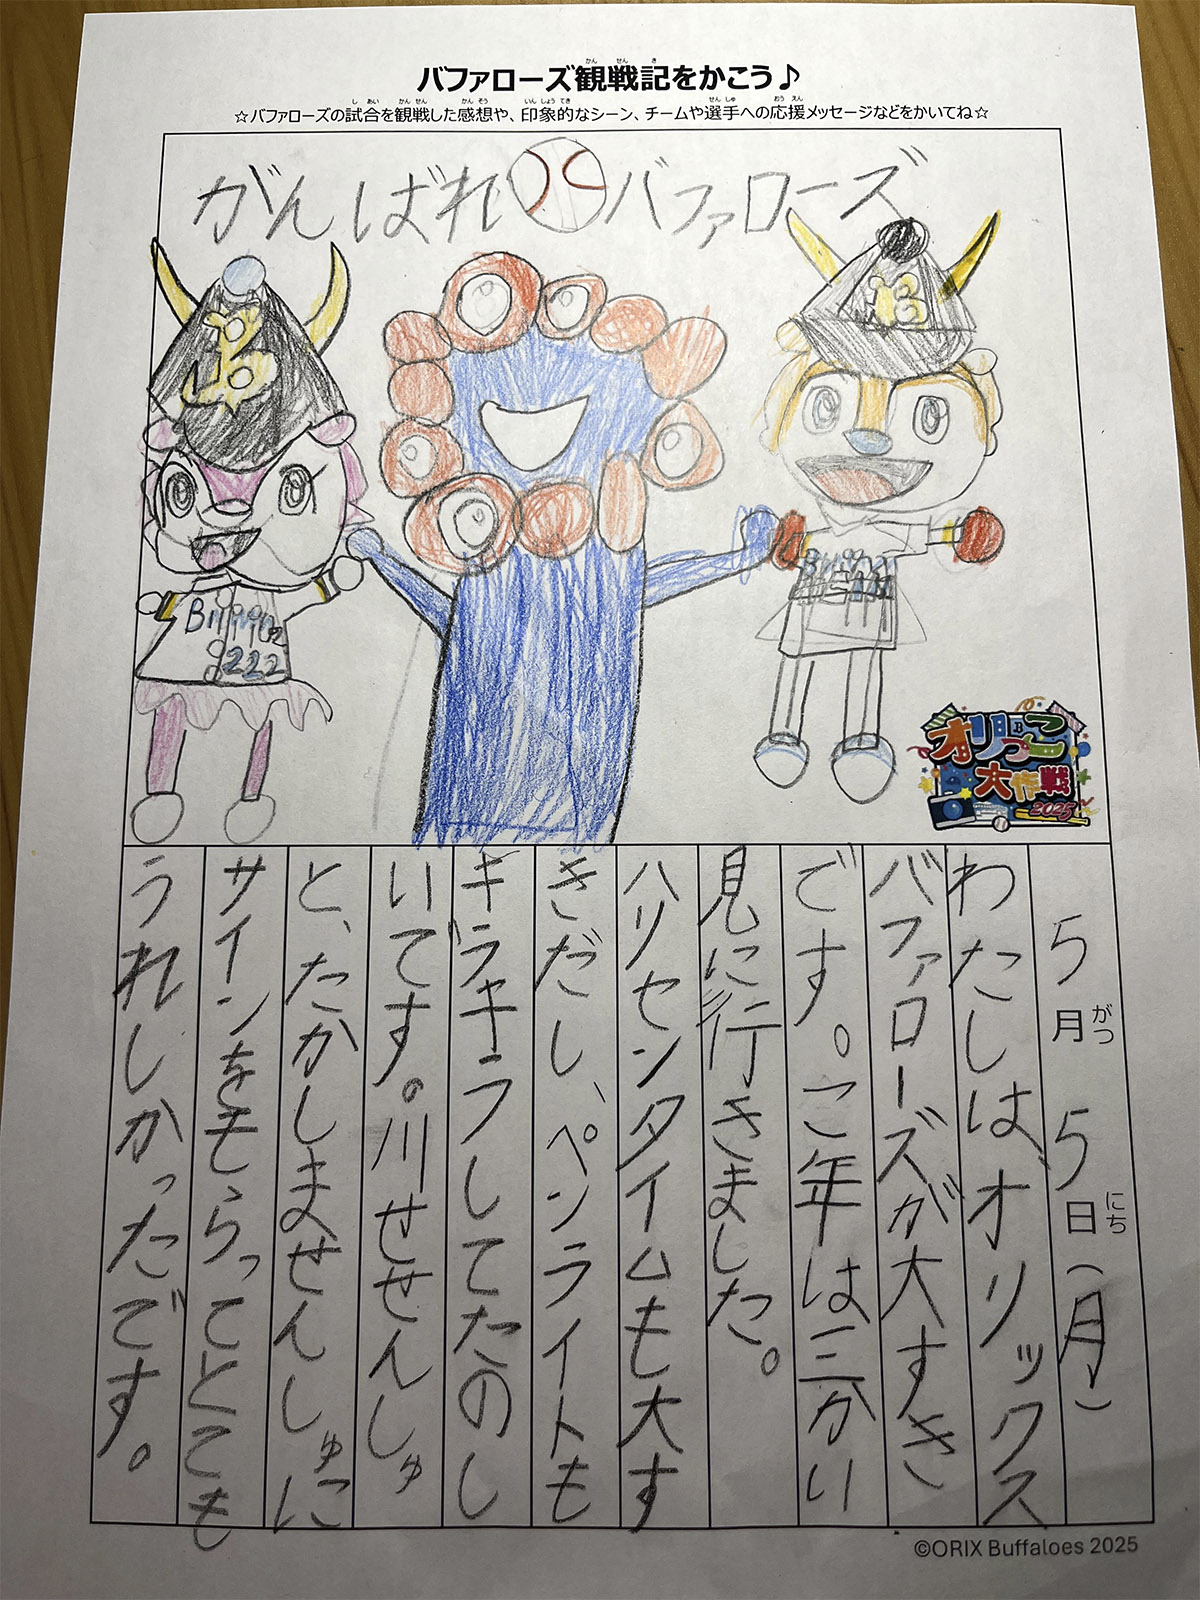 バファローズ観戦記をかこう♪
☆バファローズの試合を観戦した感想や、印象的なシーン、チームや選手への応援メッセージなどをかいてね☆
がんばれ バファローズ
B
222
オリっこ
大作戦
2025
5月5日(月)
わたしは、オリックス
バファローズが大すき
です。こ年は三かい
見に行きました。
ハリセンタイムも大す
きだし、ペンライトも
キラキラしてたのし
いです。川せせんしゅ
と、たかしませんしゅに
サインをもらってとても
うれしかったです。
©ORIX Buffaloes 2025